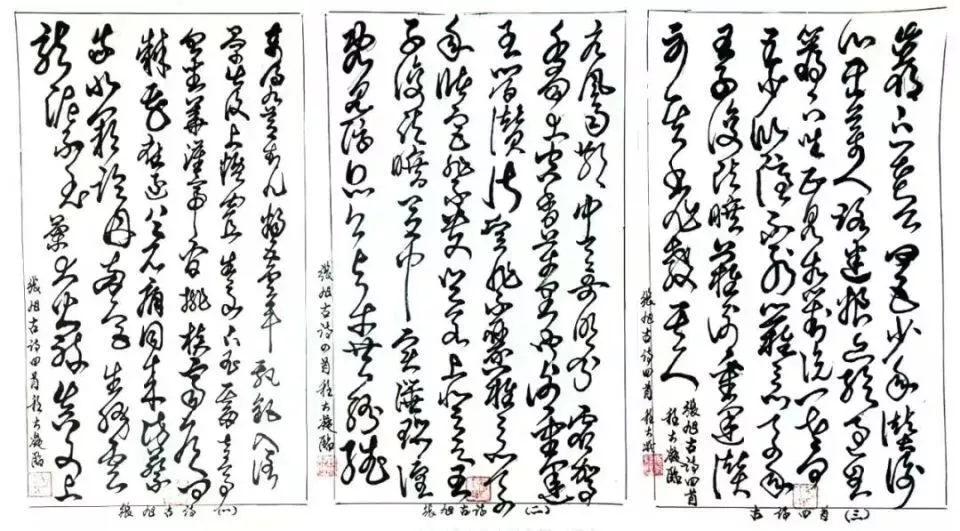 東明九芝蓋北燭五雲車飄飖入倒
景出沒上煙霞春泉下玉霤青鳥
向金華漢帝看桃核齊侯問
棗花應逐上元酒同來訪蔡
家北闕臨丹水南宮生絳雲
龍泥印玉簡大火煉真文上
張旭古詩四首
張旭古詩(一)
元風雨散中天歌吹分靈駕
千尋上空香萬里聞謝靈運
王子晉讚淑質非不麗難以之百
年儲宮非不貴豈若上登天王
子復清曠區中實譁囂
既見浮丘公與爾共紛繙
張旭古詩四首
張旭古詩(二)
巖下一老公四五少年讚衡
山採藥人路迷粮亦絕過息
巖下坐正見相對說一老四
五少仙隱不別
王子復清曠
其書非世教其人
張旭古詩四首
張旭古詩四首
古詩四首(三)